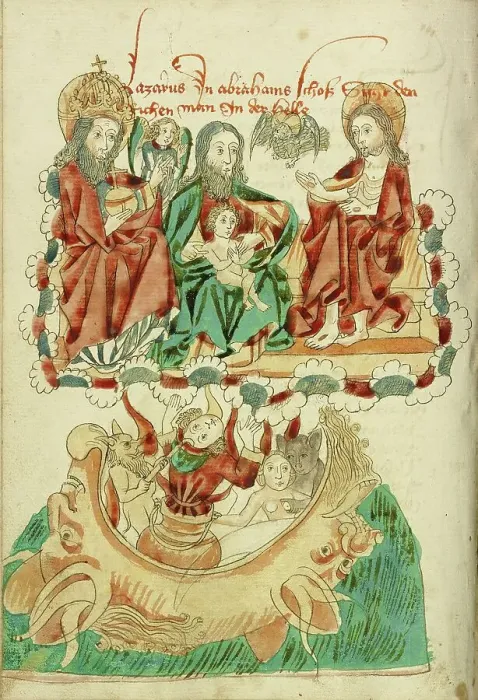 Lazarus In abrahams schoß Sicht den
richen man In der helle